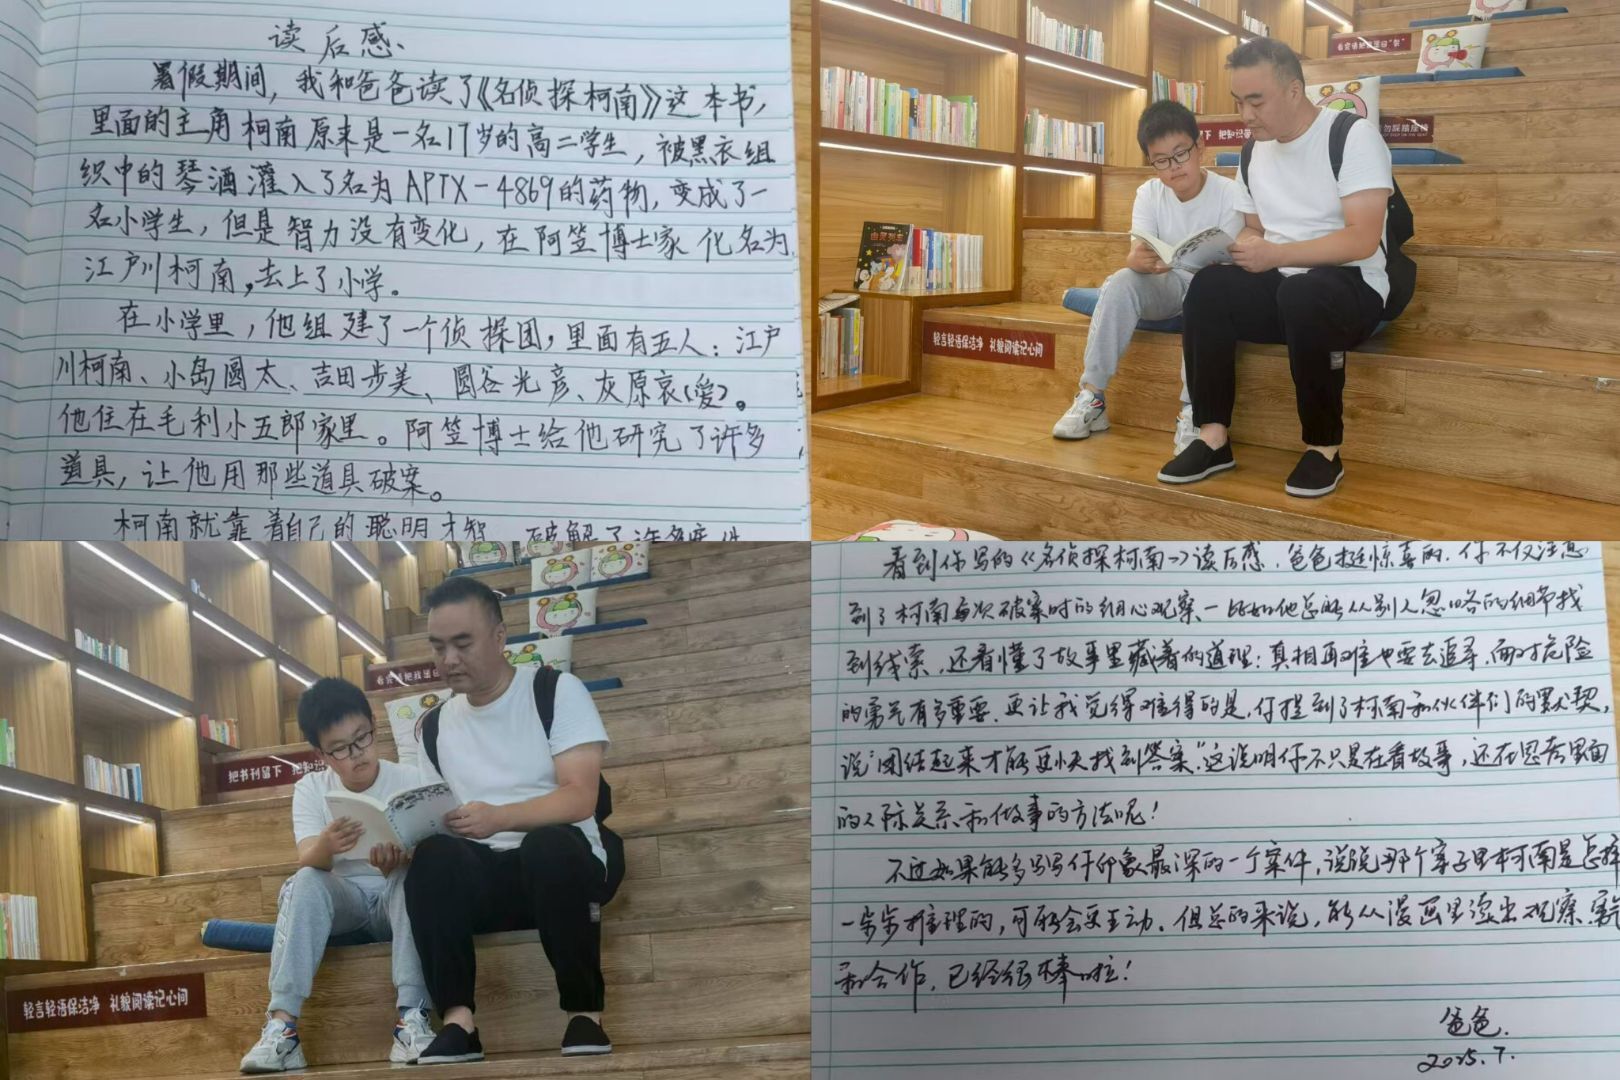 读后感、
暑假期间，我和爸爸读了《名侦探柯南》这本书，
里面的主角柯南原来是一名17岁的高二学生，被黑衣组
织中的琴酒灌入了名为APTX-4869的药物，变成了一
名小学生，但是智力没有变化，在阿笠博士家化名为
江户川柯南，去上了小学。
在小学里，他组建了一个侦探团，里面有五人：江户
川柯南、小岛圆太、吉田步美、圆谷光彦、灰原哀（爱）。
他住在毛利小五郎家里。阿笠博士给他研究了许多
道具，让他用那些道具破案。
柯南就靠着自己的聪明才智
看完请把我送回"家"
把知识带
勿踩踏座位
幽灵列车
轻言轻语保洁净 礼貌阅读记心间
看完请把我送回
把书刊留下 把知识
轻言轻语保洁净 礼貌阅读记心间
看到你写的《名侦探柯南》读后感，爸爸挺惊喜的，你不仅注意
到了柯南每次破案时的细心观察－比如他总能从别人忽略的细节找
到线索，还看懂了故事里藏着的道理：真相再难也要去追寻，面对危险
的勇气有多重要。更让我觉得难得的是，你提到了柯南和伙伴们的默契，
说"团结起来才能更快找到答案"这说明你不只是在看故事，还在思考里面
的人际关系和做事的方法呢！
不过如果能多写写你印象最深的一个案件，说说那个案子里柯南是怎样
一步步推理的，可能会更生动。但总的来说，能从漫画里读出观察、
和合作，已经很棒啦！
爸爸.
2025.7.